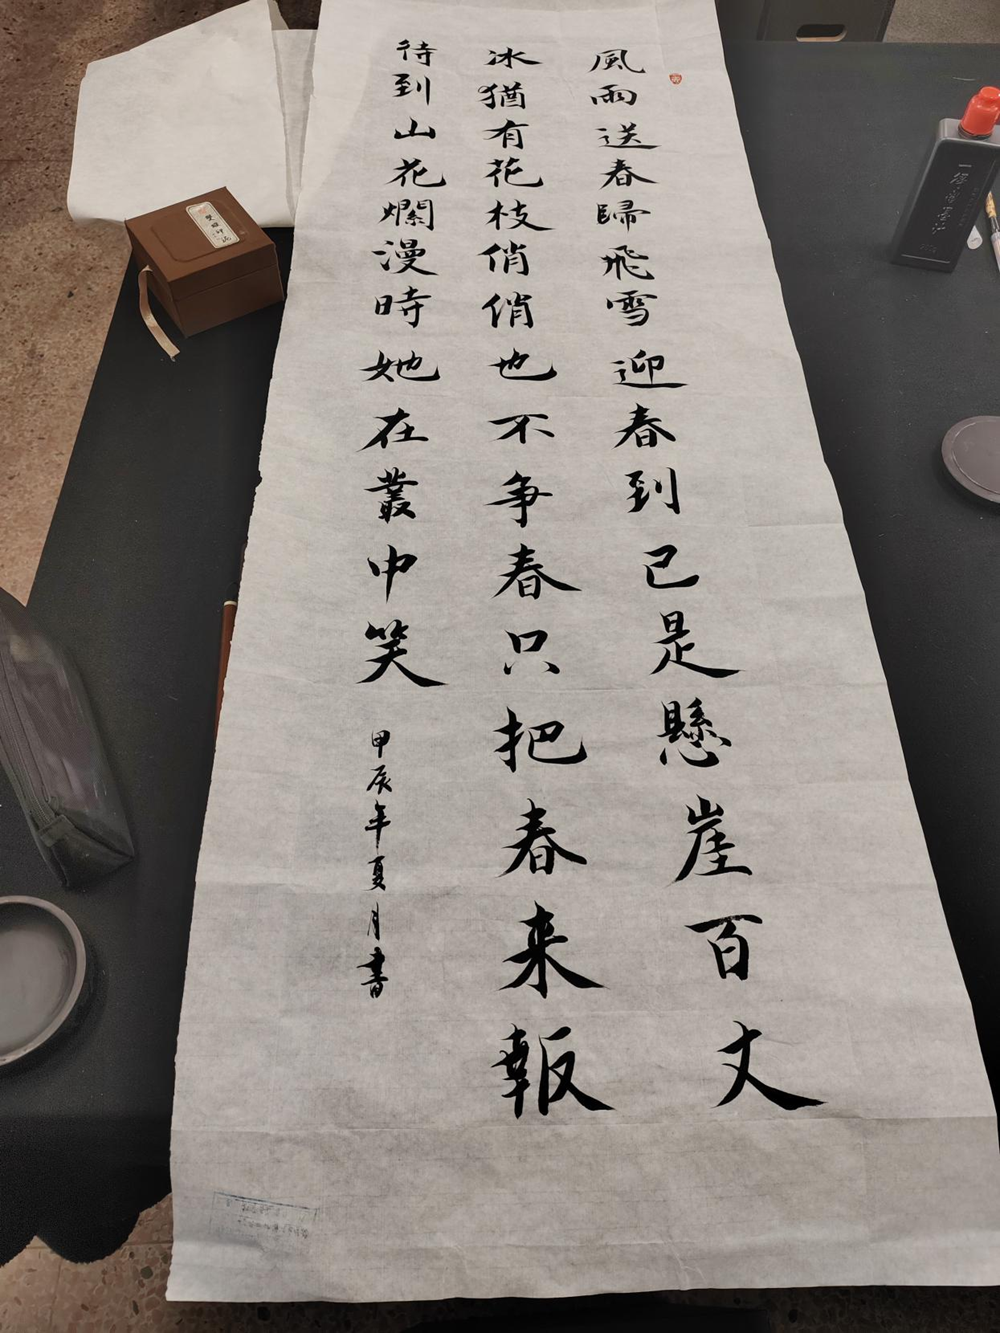 風雨送春歸飛雪迎春到已是懸崖百丈
冰猶有花枝俏俏也不争春只把春来報
待到山花爛漫時她在叢中笑
甲辰年夏月書